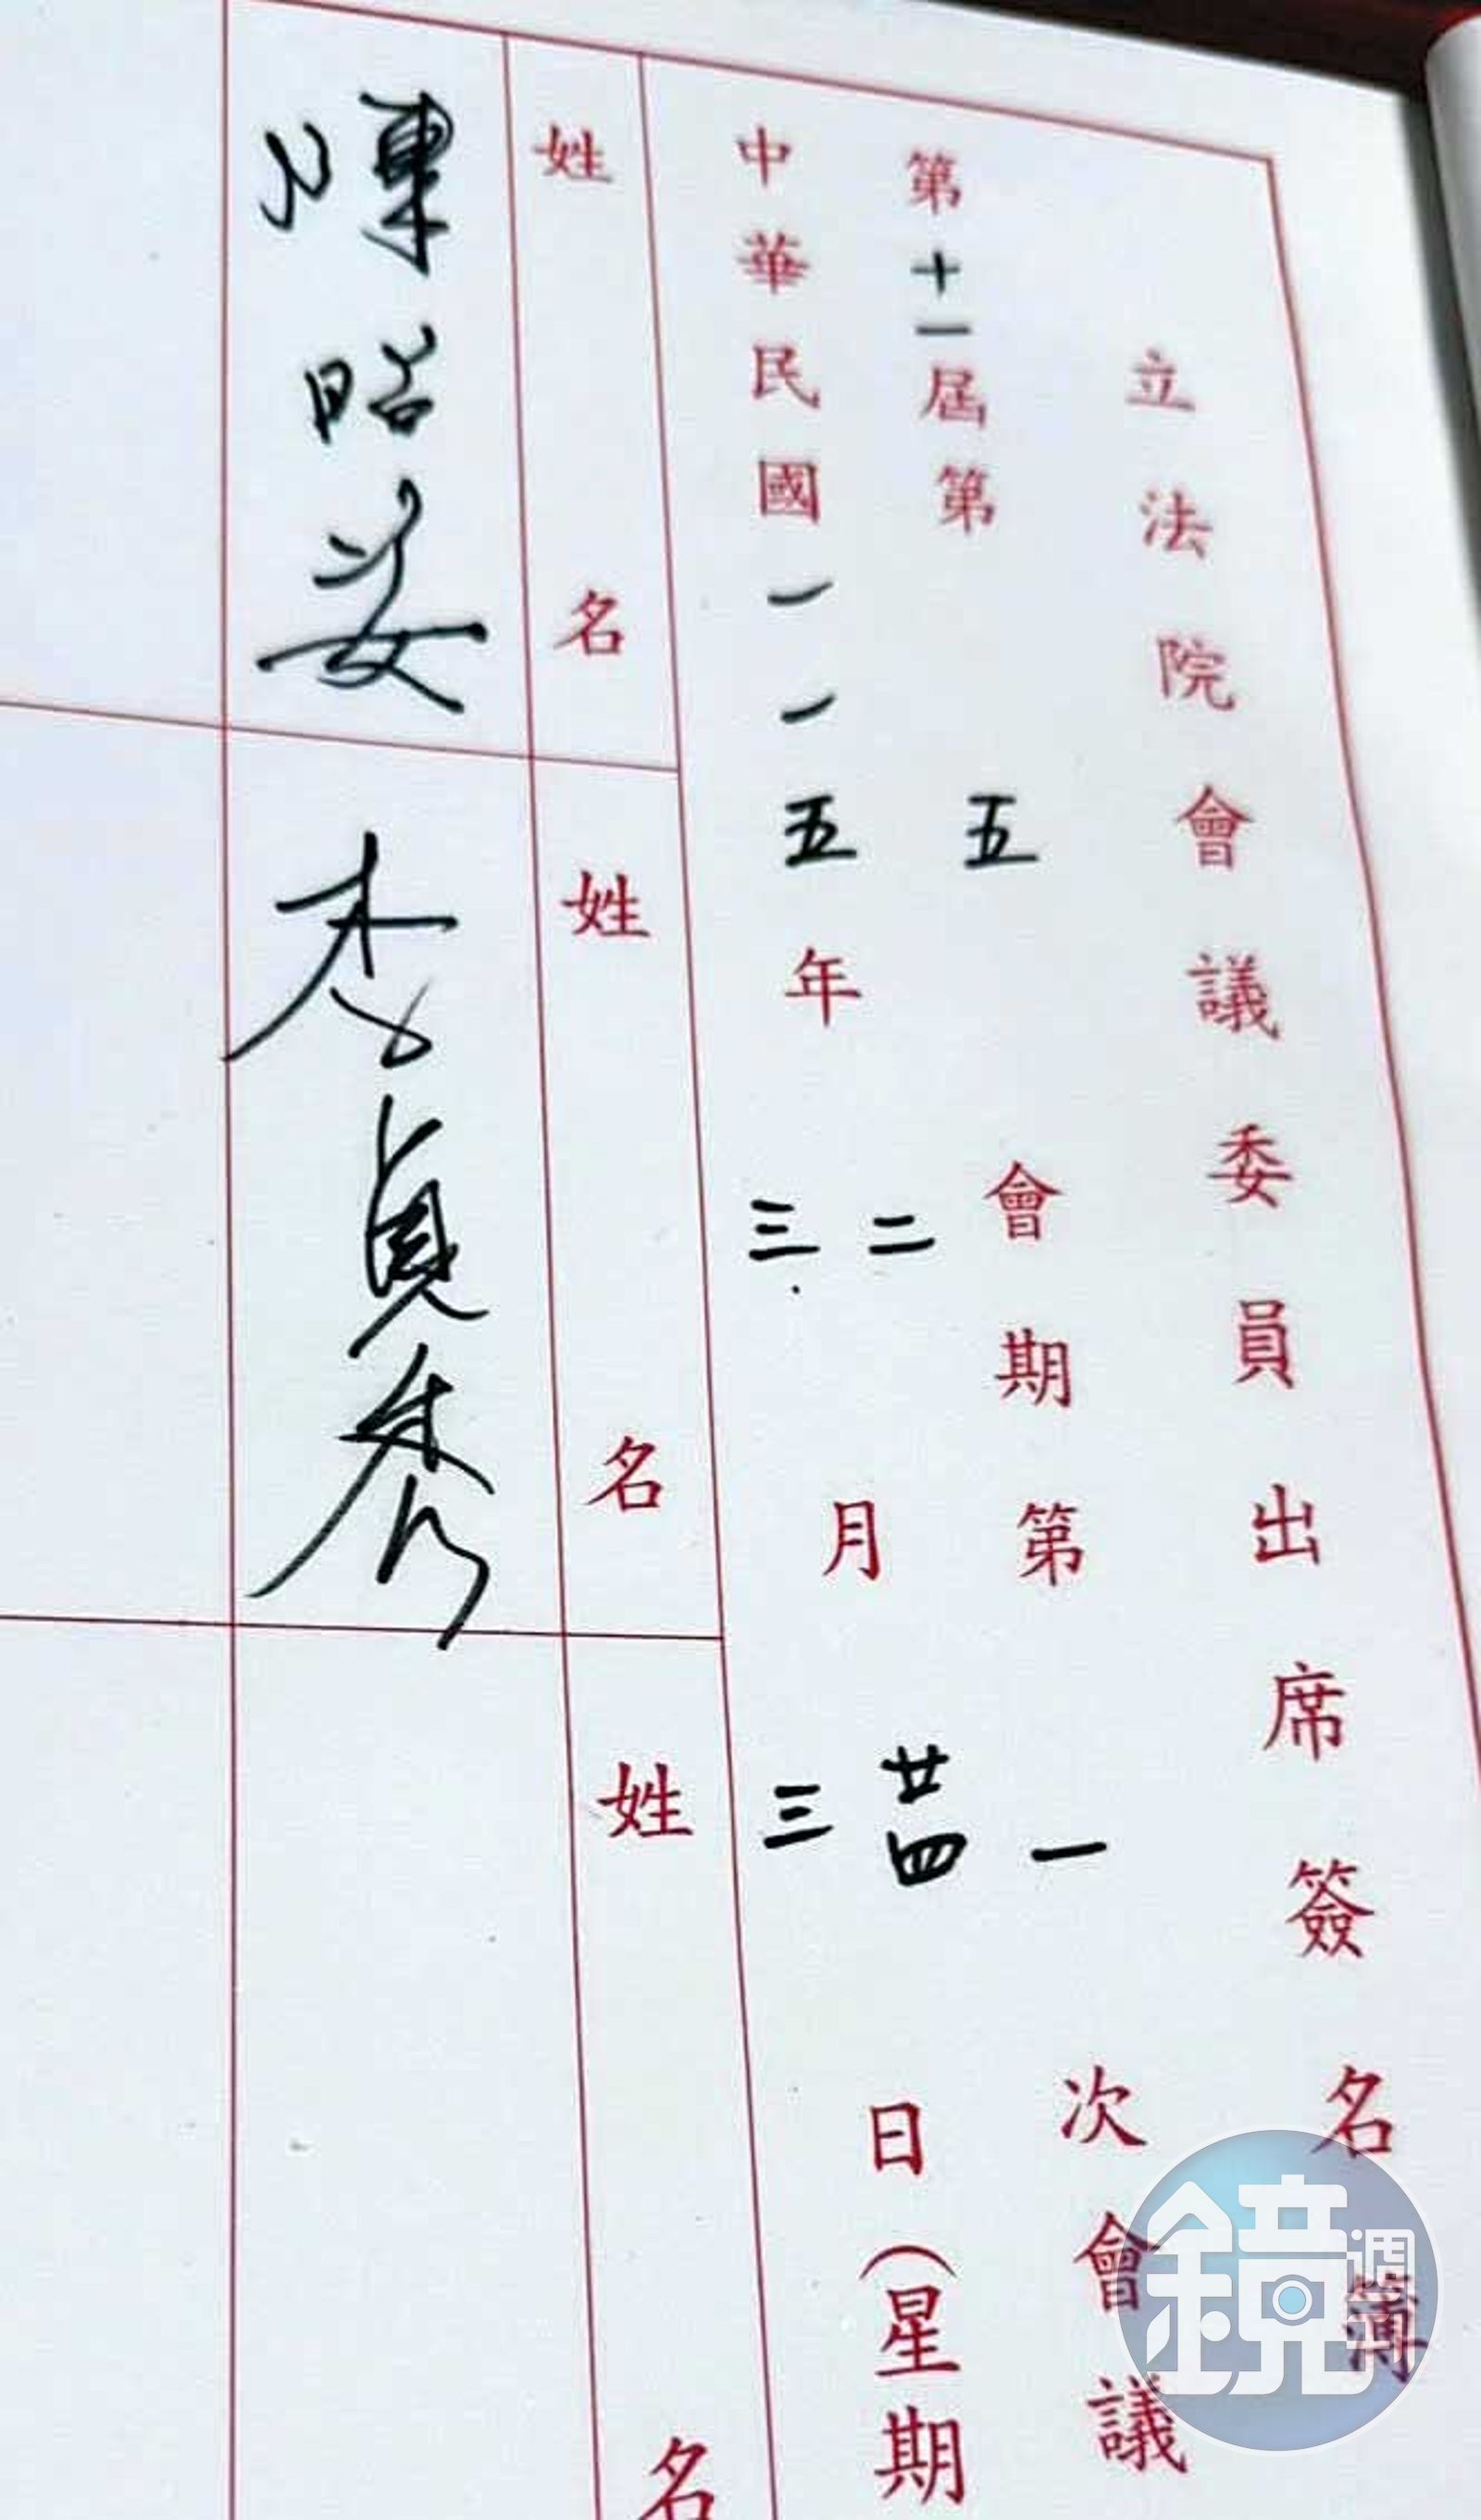 立法院會議委員出席簽名簿
第十一屆第五會期第一次會議
中華民國一一五年二三月廿四三日(星期
姓名
陳昭姿
姓名
李貞秀
姓名
鏡週刊